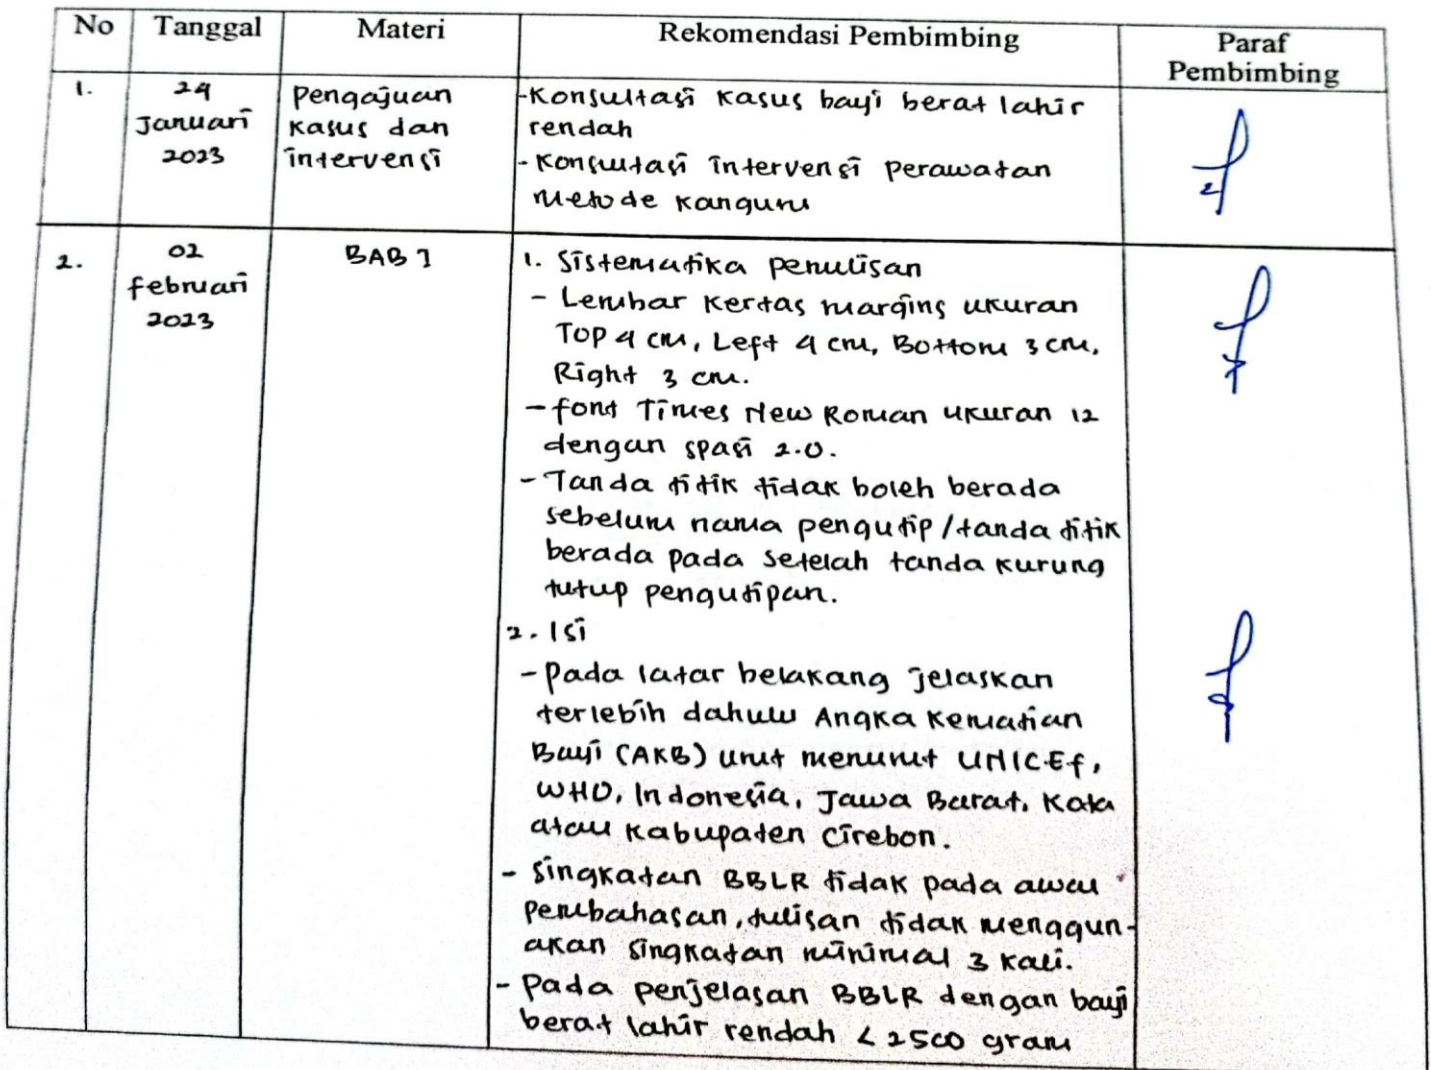 No Tanggal Materi Rekomendasi Pembimbing Paraf
Pembimbing
1. 24 Pengajuan -Konsultasi kasus bayi berat lahir
Januari kasus dan rendah
2023 intervensi - Konsultasi intervensi perawatan
metode kanguru
2. 02 BAB I 1. Sistematika penulisan
februari - Lembar kertas margins ukuran
2023 Top 4 cm, Left 4 cm, Bottom 3 cm,
Right 3 cm.
- font Times New Roman ukuran 12
dengan spasi 2.0.
- Tanda titik tidak boleh berada
sebelum nama pengutip/tanda titik
berada pada setelah tanda kurung
tutup pengutipan.
2. Isi
- pada latar belakang jelaskan
terlebih dahulu Angka Kematian
Bayi (AKB) urut menurut UNICEf,
WHO, Indonesia, Jawa Barat, Kota
atau Kabupaten Cirebon.
- Singkatan BBLR tidak pada awal
pembahasan, tulisan tidak menggun-
akan singkatan minimal 3 kali.
- pada penjelasan BBLR dengan bayi
berat lahir rendah < 2500 gram